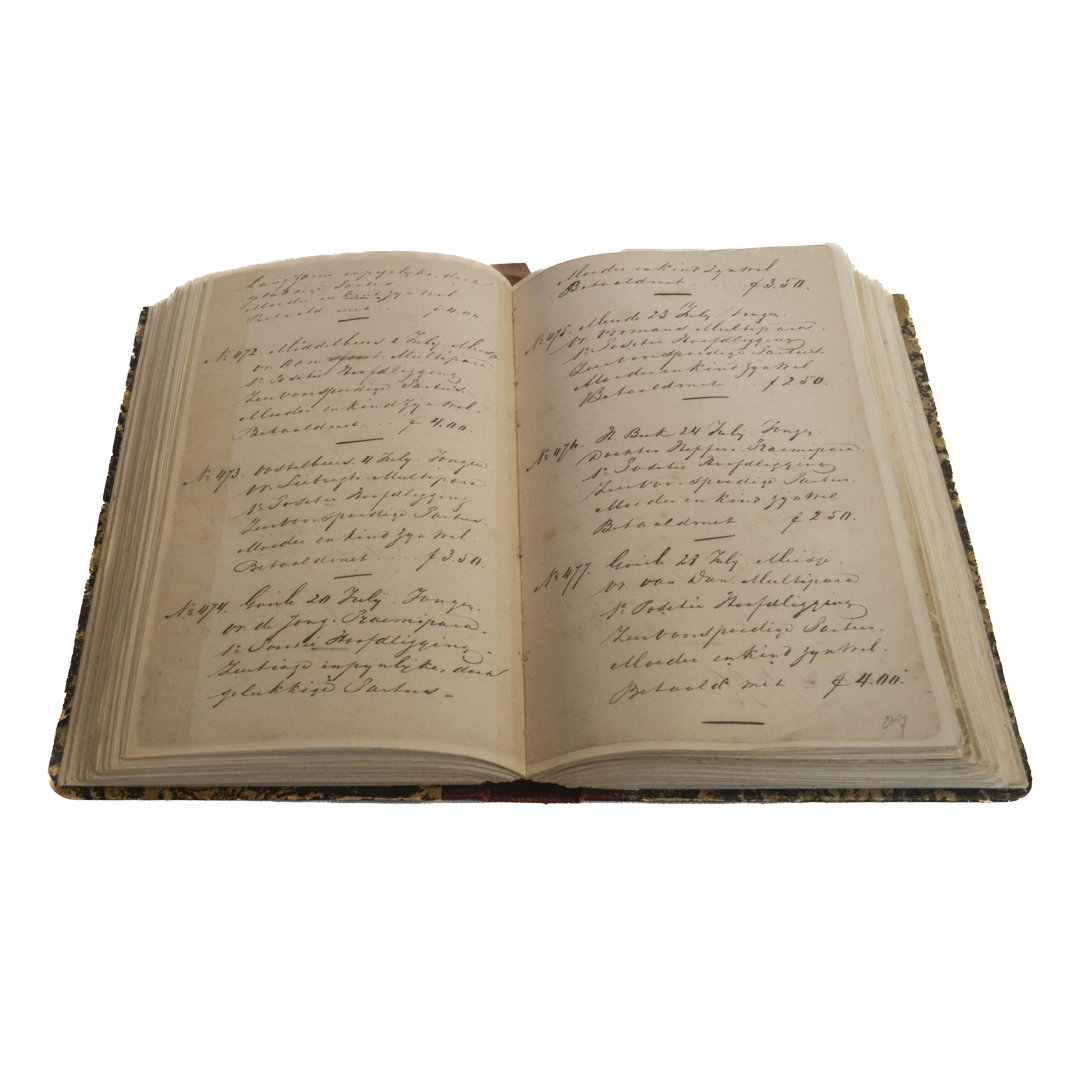 langzame en pynlyke, doch
gelukkige Partus.
Moeder en kind zyn wel
Betaald met . . . f 4.00.
No 472. Middelbeers 2 July. Meisje
vr. Adm t. Multipara
1e Positie Hoofdligging
Zeer voorspoedige Partus.
Moeder en kind zyn wel.
Betaald met . . . f 4.00.
No 473. Oostelbeers. 4 July. Jongen.
vr. Liebregts. Multipara
1e Positie Hoofdligging
Zeer voorspoedige Partus.
Moeder en kind zyn wel
Betaald met . . . f 3.50.
No 474. Goirle 20 July. Jongen.
vr. de Jong. Praemipara.
1e Positie Hoofdligging.
Zeer trage en pynlyke, doch
gelukkige Partus –
Moeder en kind zyn wel
Betaald met . . . . f 3.50.
No 475. Mierde 23 July. Jongen.
vr. Vromans. Multipara.
1e Positie Hoofdligging
Zeer voorspoedige Partus.
Moeder en kind zyn wel
Betaald met . . f 2.50.
No 476. H. Beek 24 July. Jongen.
Dochter Praemipara.
1e Positie Hoofdligging
Zeer voorspoedige Partus.
Moeder en kind zyn wel
Betaald met f 2.50.
No 477. Goirle 28 July. Meisje.
vr. van Dun. Multipara
1e Positie Hoofdligging
Zeer voorspoedige Partus.
Moeder en kind zyn wel.
Betaald met . f 4.00.